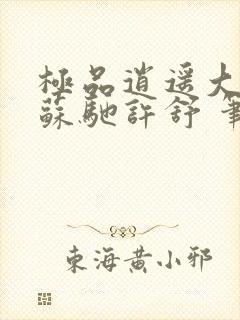 極品逍遥大
蘇馳許舒 筆
東海黄小邪